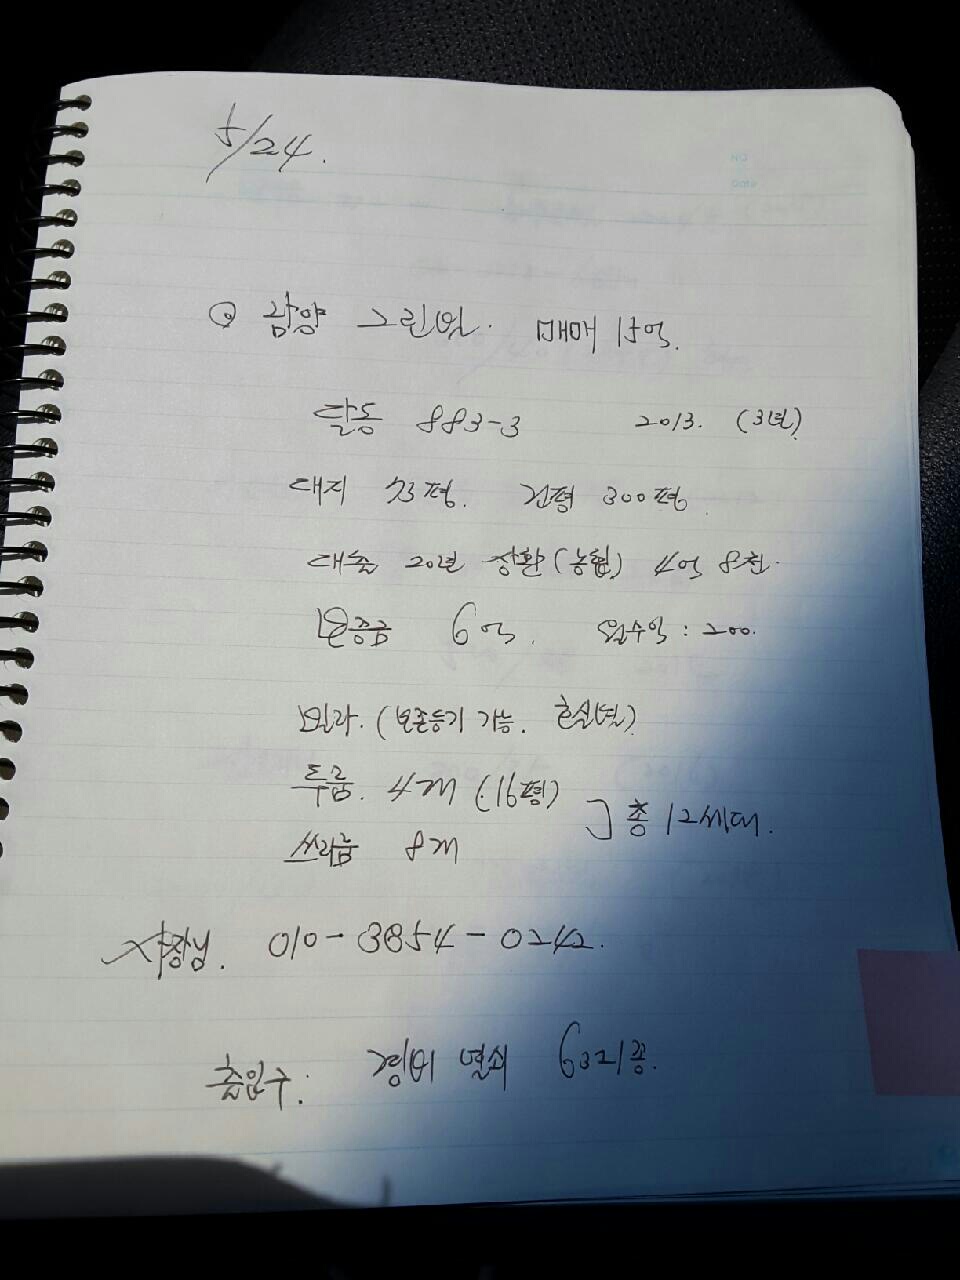 5/24.
⊙ 감양 그린빌. 매매 15억.
달동 883-3 2013. (3년)
대지 73평. 건평 300평.
대출 20년 상환(농협) 4억 8천.
보증금 6억. 월수익 : 200.
빌라. (보존등기 가능.
투룸. 4개 (16평)
쓰리룸 8개 ] 총 12세대.
사장님. 010-3854-0242.
출입구: 경비 열쇠 6321종.